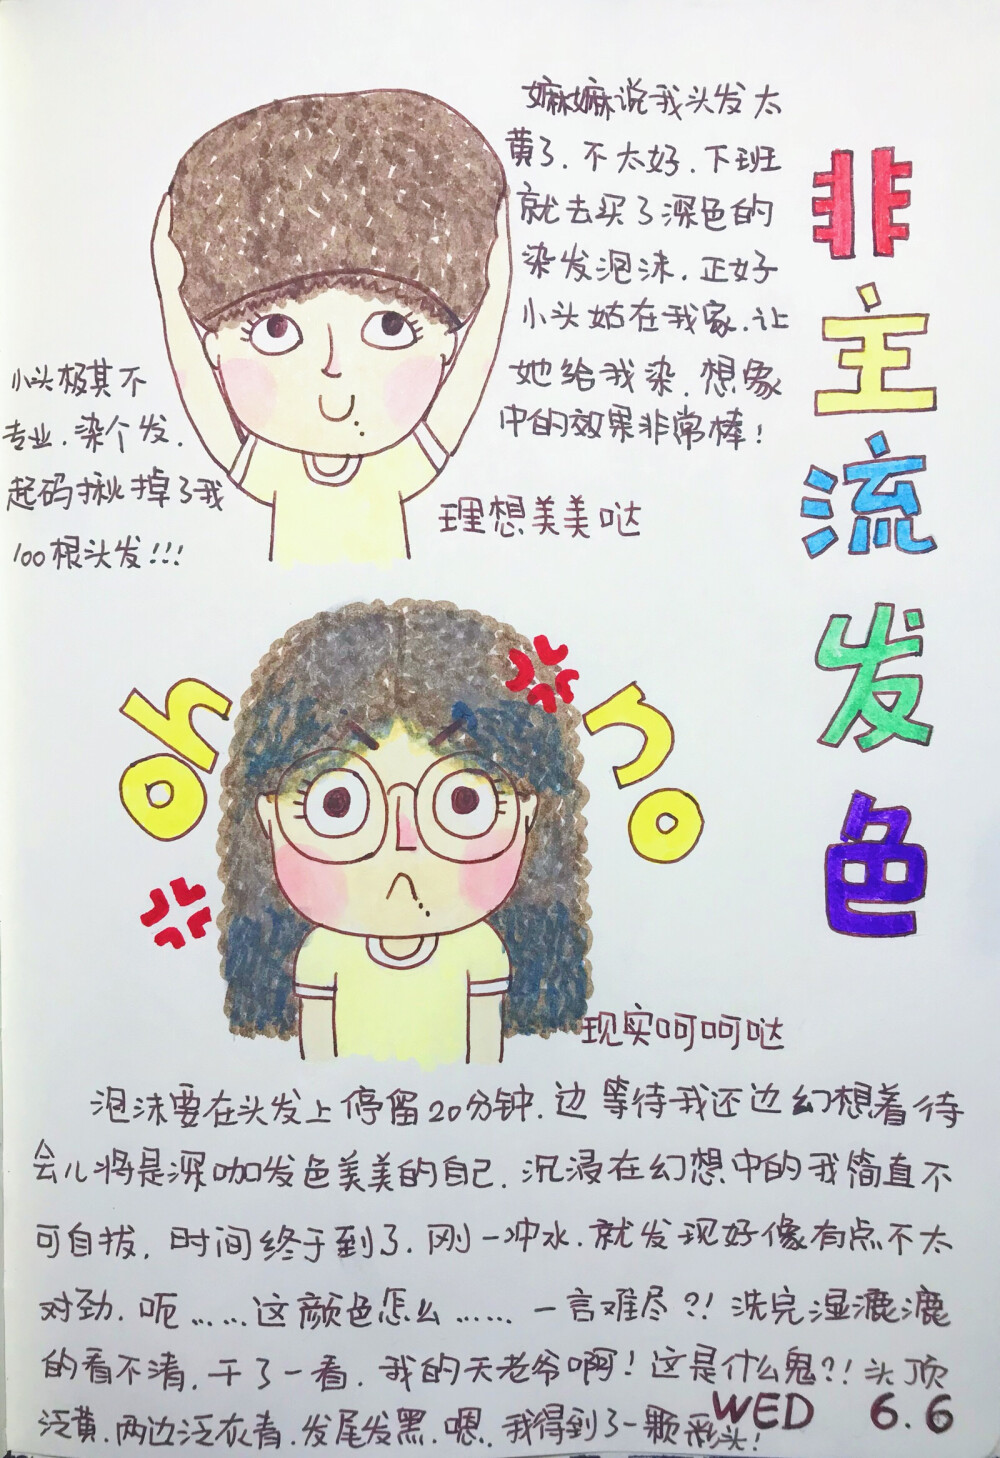 非主流发色
嫲嫲说我头发太
黄了.不太好.下班
就去买了深色的
染发泡沫.正好
小头姑在我家.让
她给我染.想象
中的效果非常棒!
小头极其不
专业.染个发.
起码揪掉了我
100根头发!!!
理想美美哒
oh no
现实呵呵哒
泡沫要在头发上停留20分钟.边等待我还边幻想着待
会儿将是深咖发色美美的自己.沉浸在幻想中的我简直不
可自拔.时间终于到了.刚一冲水.就发现好像有点不太
对劲.呃……这颜色怎么……一言难尽?!洗完湿漉漉
的看不清.干了一看.我的天老爷啊!这是什么鬼?!头顶
泛黄.两边泛灰青.发尾发黑.嗯.我得到了一颗彩头!
WED 6.6